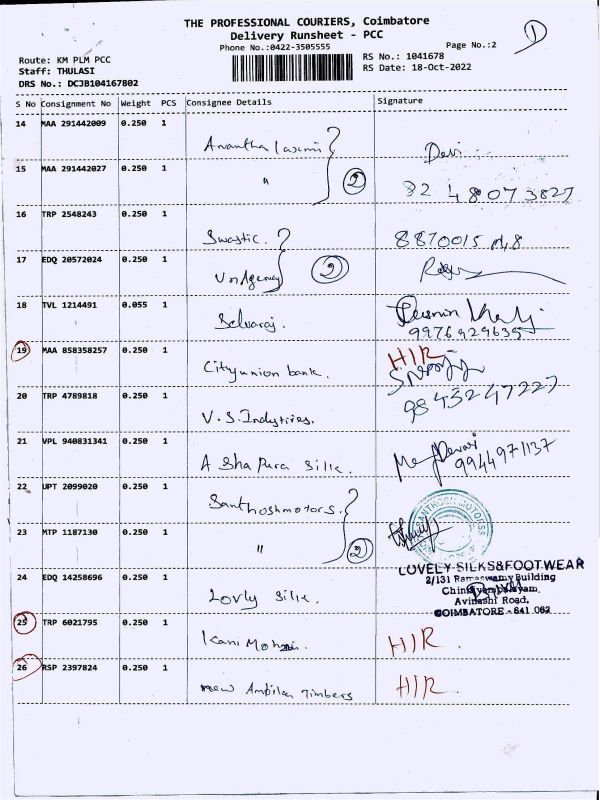 THE PROFESSIONAL COURIERS, Coimbatore
Delivery Runsheet - PCC
Phone No.:0422-3505555
Page No.:2
1
Route: KM PLM PCC
RS No.: 1041678
Staff: THULASI
RS Date: 18-Oct-2022
DRS No.: DCJB104167802
S No Consignment No Weight PCS Consignee Details Signature
14 MAA 291442009 0.250 1
Anantha laxmi
Devi
15 MAA 291442027 0.250 1
" 2
82 48073827
16 TRP 2548243 0.250 1
Swastic.
17 EDQ 20572024 0.250 1
2
18 TVL 1214491 0.055 1
Selvaraj.
9976929635
19 MAA 858358257 0.250 1
City union bank.
HIR
20 TRP 4789818 0.250 1
V.S. Industries.
9843247227
21 VPL 940831341 0.250 1
A Sha Pura Silk.
9944971137
22 UPT 2099020 0.250 1
Santhosh motors.
SANTHOSH MOTORSS
23 MTP 1187130 0.250 1
" 2
24 EDQ 14258696 0.250 1
Lovly Silk.
LOVELY SILKS&FOOTWEAR
2/131 Ramaswamy Building
Avinashi Road,
COIMBATORE - 641 062
25 TRP 6021795 0.250 1
Kani
HIR
26 RSP 2397824 0.250 1
new Timbers
HIR.